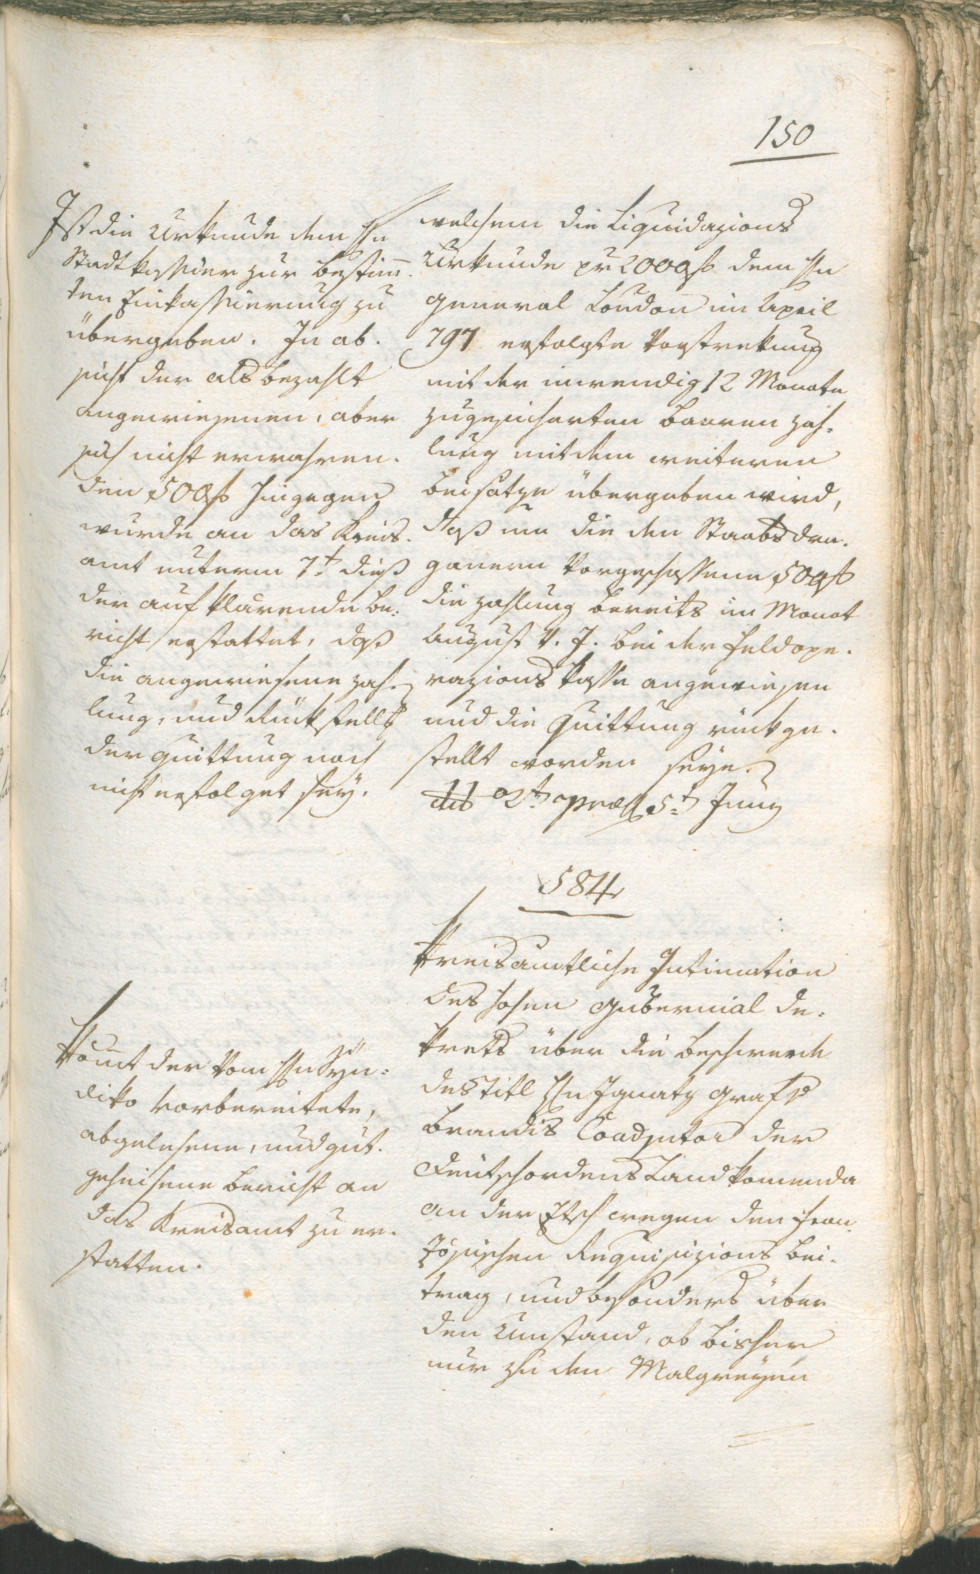 150
Ist die Urkunde dem Hn
Stadtkassier zur bestim̅-
ten Einkassierung zu
übergeben. In ab-
sicht der als bezahlt
angewiesenen, aber
sich nicht erwahren-
den 500 f hingegen
wurde an das Kreis-
amt unterm 7t dieß
der aufklärende be-
richt erstattet, daß
die angewiesene zah-
lung, und Rückstells
der quittung noch
nicht erfolget sey.
welchem die Liquidazions
Urkunde pr 2000 f dem Hn
General Loudon im April
797 erfolgte Vorstrekung
mit der inwendig 12 Monate
zugesicherten baaren zah-
lung mit dem weiteren
beisatze übergeben wird,
daß um die den Staabsdra-
gonern Vorgeschossene 500 f
die zahlung bereits im Monat
August v. J. bei der Feldope-
razions Kasse angewiesen
und die Quittung rückge-
stellt worden seye.
dto 2t præs 5t Juny
584
Kreisamtliche Intimation
des hohen Gubernial De-
krets über die beschwerde
des Titl Hn Ignatz Grafs
Brandis Coadjutor der
Deutschordens Landkomenda
an der Etsch wegen den fran-
zösischen Requisizions bei-
trag, und besonders über
den Umstand, ob bisher
nur zu den Malgreyen
Kom̅t der vom Hn Syn-
diko vorbereitete,
abgelesene, und gut-
geheisene bericht an
das Kreisamt zu er-
statten.